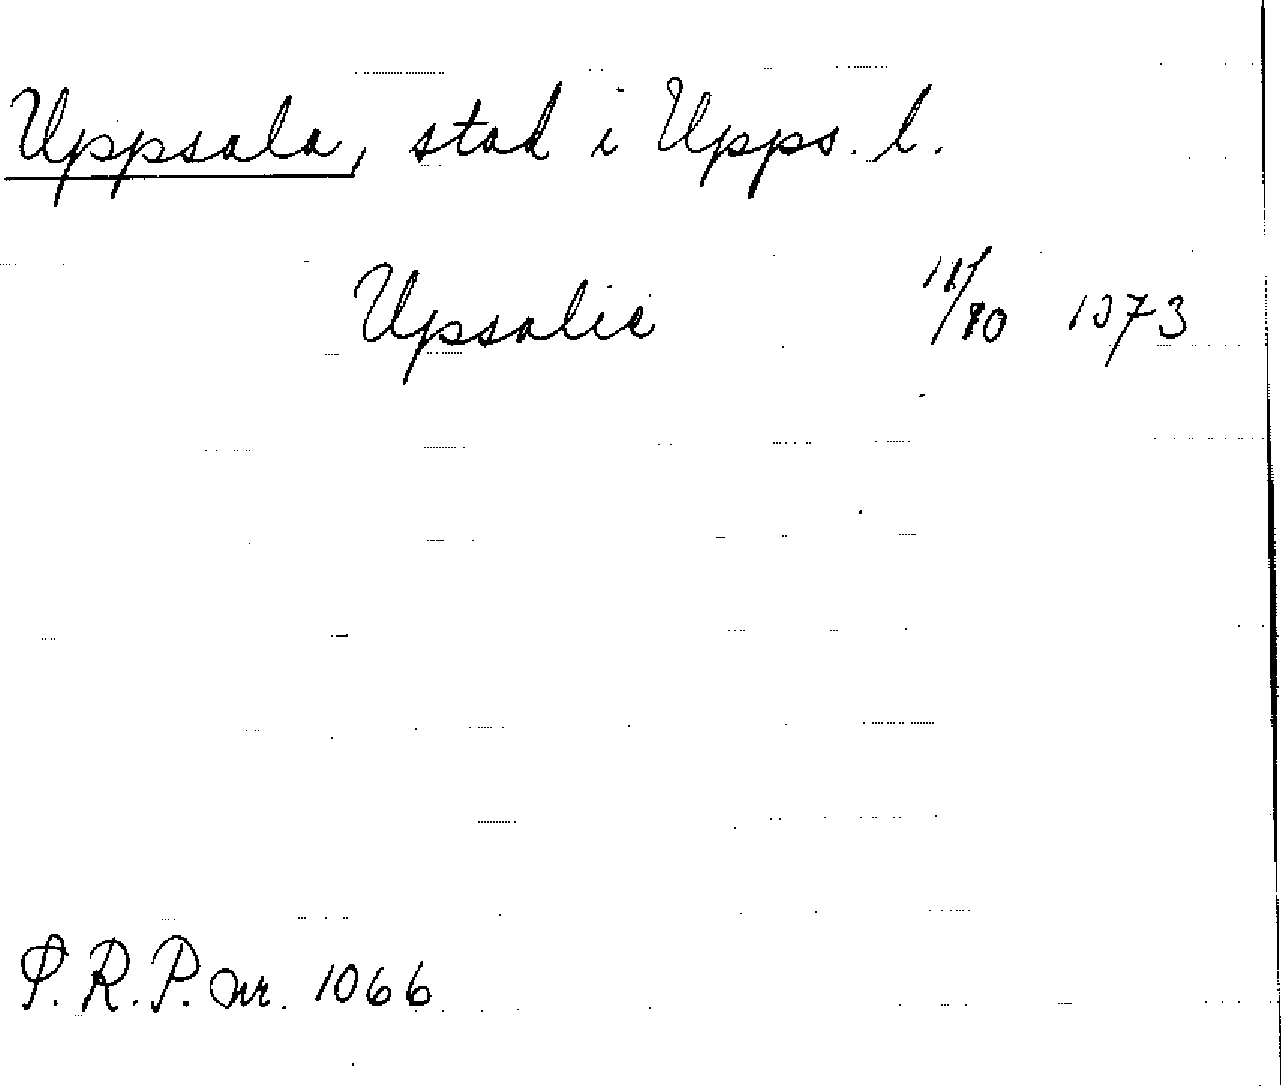 Uppsala, stad i Upps. l.
Upsalie 1373
P.R.P. nr. 1066